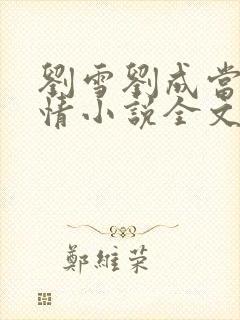 劉雪劉成當
情小說全文
鄭維榮